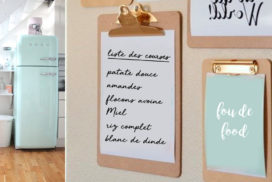 World!
liste des courses
patate douce
amandes
flocons avoine
Miel
riz complet
blanc de dinde
fou de
food